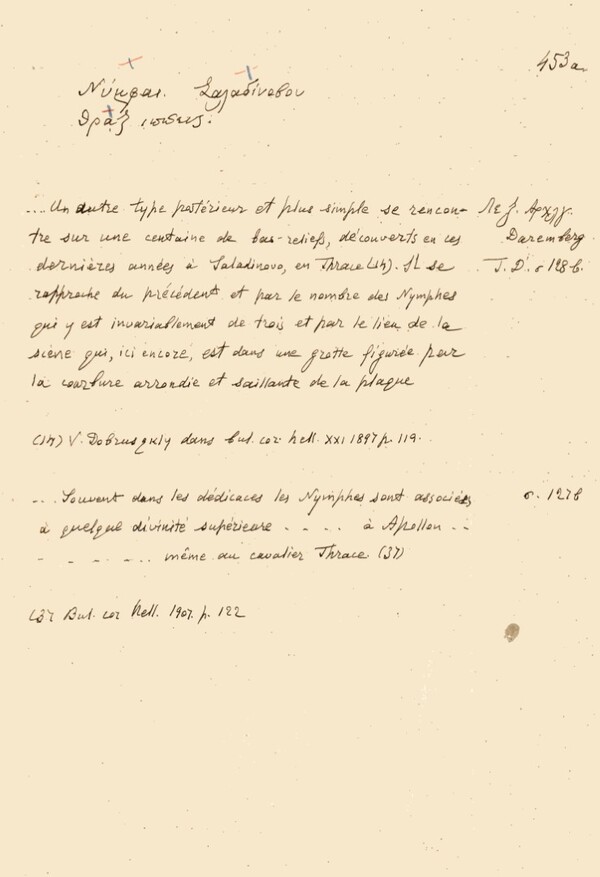 453a
Νύμφαι. Σαλαδίνοβου
Θράξ ιππεύς.
...Un autre type postérieur et plus simple se rencon- Λεξ. Αρχλγ.
tre sur une centaine de bas-reliefs, découverts en ces Daremberg
dernières années à Saladinovo, en Thrace (14). Il se T. D. σ 128 b.
rapproche du précédent et par le nombre des Nymphes
qui y est invariablement de trois et par le lieu de la
scène qui, ici encore, est dans une grotte figurée par
la courbure arrondie et saillante de la plaque
(14) V. Dobrusky dans bul. cor. hell. XXI 1897 p. 119.
... Souvent dans les dédicaces les Nymphes sont associées σ. 127 b
à quelque divinité supérieure . . . . à Apollon ..
- - - ... même au cavalier Thrace (37)
(37 Bul. cor hell. 1907. p. 122